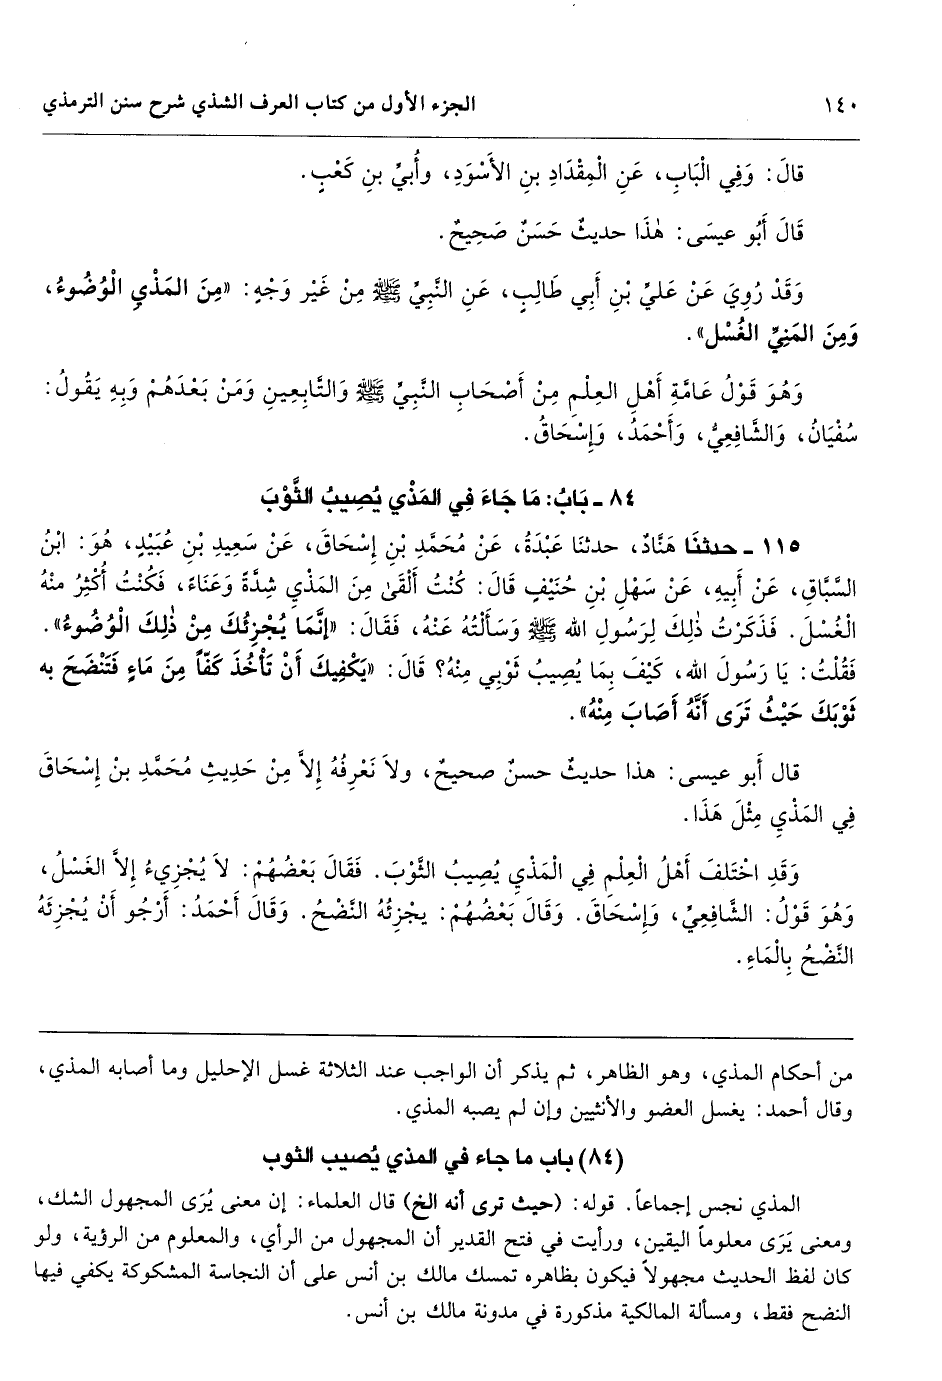 ١٤٠ الجزء الأول من كتاب العرف الشذي شرح سنن الترمذي
قالَ: وَفِي الْبَابِ، عَنِ الْمِقْدَادِ بنِ الأَسْوَدِ، وأُبيِّ بنِ كَعْبٍ.
قَالَ أَبُو عيسَى: هٰذَا حديثٌ حَسَنٌ صَحِيحٌ.
وَقَدْ رُوِيَ عَنْ عَليِّ بْنِ أَبِي طَالِبٍ، عَنِ النَّبِيِّ ﷺ مِنْ غَيْرِ وَجْهٍ: «مِنَ المَذْيِ الْوُضُوءُ،
وَمِنَ المَنِيِّ الغُسْل».
وَهُوَ قَوْلُ عَامَّةِ أَهْلِ العِلْمِ مِنْ أَصْحَابِ النَّبِيِّ ﷺ وَالتَّابِعِينِ وَمَنْ بَعْدَهُمْ وَبِهِ يَقُولُ:
سُفْيَانُ، وَالشَّافِعِيُّ، وَأَحْمَدُ، وَإِسْحَاقُ.
٨٤ ـ بَابُ: مَا جَاءَ فِي المَذْي يُصِيبُ الثَّوْبَ
١١٥ ـ حدثنَا هَنَّادٌ، حدثنَا عَبْدَةُ، عَنْ مُحَمَّدِ بْنِ إِسْحَاقَ، عَنْ سَعِيدِ بْنِ عُبَيْدٍ، هُوَ: ابْنُ
السَّبَّاقِ، عَنْ أَبِيهِ، عَنْ سَهْلِ بْنِ حُنَيْفٍ قَالَ: كُنْتُ أَلْقَىٰ مِنَ المَذْيِ شِدَّةً وَعَنَاءً، فَكُنْتُ أُكْثِرُ منْهُ
الْغُسْلَ. فَذَكَرْتُ ذٰلِكَ لِرَسُولِ الله ﷺ وَسَأَلْتُهُ عَنْهُ، فَقَالَ: «إِنَّمَا يُجْزِئُكَ مِنْ ذٰلِكَ الْوُضُوءُ».
فَقُلْتُ: يا رَسُولَ الله، كَيْفَ بِمَا يُصِيبُ ثَوْبِي مِنْهُ؟ قالَ: «يَكْفِيكَ أَنْ تَأْخُذَ كَفّاً مِنَ مَاءٍ فَتَنْضَحَ به
ثَوْبَكَ حَيْثُ تَرَى أَنَّهُ أَصَابَ مِنْهُ».
قال أَبو عيسى: هذا حديثٌ حسنٌ صحيحٌ، ولاَ نَعْرِفُهُ إِلاَّ مِنْ حَدِيثِ مُحَمَّدِ بنِ إِسْحَاقَ
فِي المَذْيِ مِثْلَ هَذَا.
وَقَدِ اخْتَلَفَ أَهْلُ الْعِلْمِ فِي الْمَذْيِ يُصِيبُ الثَّوْبَ. فَقَالَ بَعْضُهُمْ: لاَ يُجْزِيءُ إِلاَّ الغَسْلُ،
وَهُوَ قَوْلُ: الشَّافِعِيِّ، وَإِسْحَاقَ. وَقَالَ بَعْضُهُمْ: يجْزِئُهُ النَّضْحُ. وَقَالَ أَحْمَدُ: أَرْجُو أَنْ يُجْزِئَهُ
النَّضْحُ بِالْمَاءِ.
من أحكام المذي، وهو الظاهر، ثم يذكر أن الواجب عند الثلاثة غسل الإحليل وما أصابه المذي،
وقال أحمد: يغسل العضو والأنثيين وإن لم يصبه المذي.
(٨٤) باب ما جاء في المذي يُصيب الثوب
المذي نجس إجماعاً. قوله: (حيث ترى أنه الخ) قال العلماء: إن معنى يُرَى المجهول الشك،
ومعنى يَرَى معلوماً اليقين، ورأيت في فتح القدير أن المجهول من الرأي، والمعلوم من الرؤية، ولو
كان لفظ الحديث مجهولاً فيكون بظاهره تمسك مالك بن أنس على أن النجاسة المشكوكة يكفي فيها
النضح فقط، ومسألة المالكية مذكورة في مدونة مالك بن أنس.